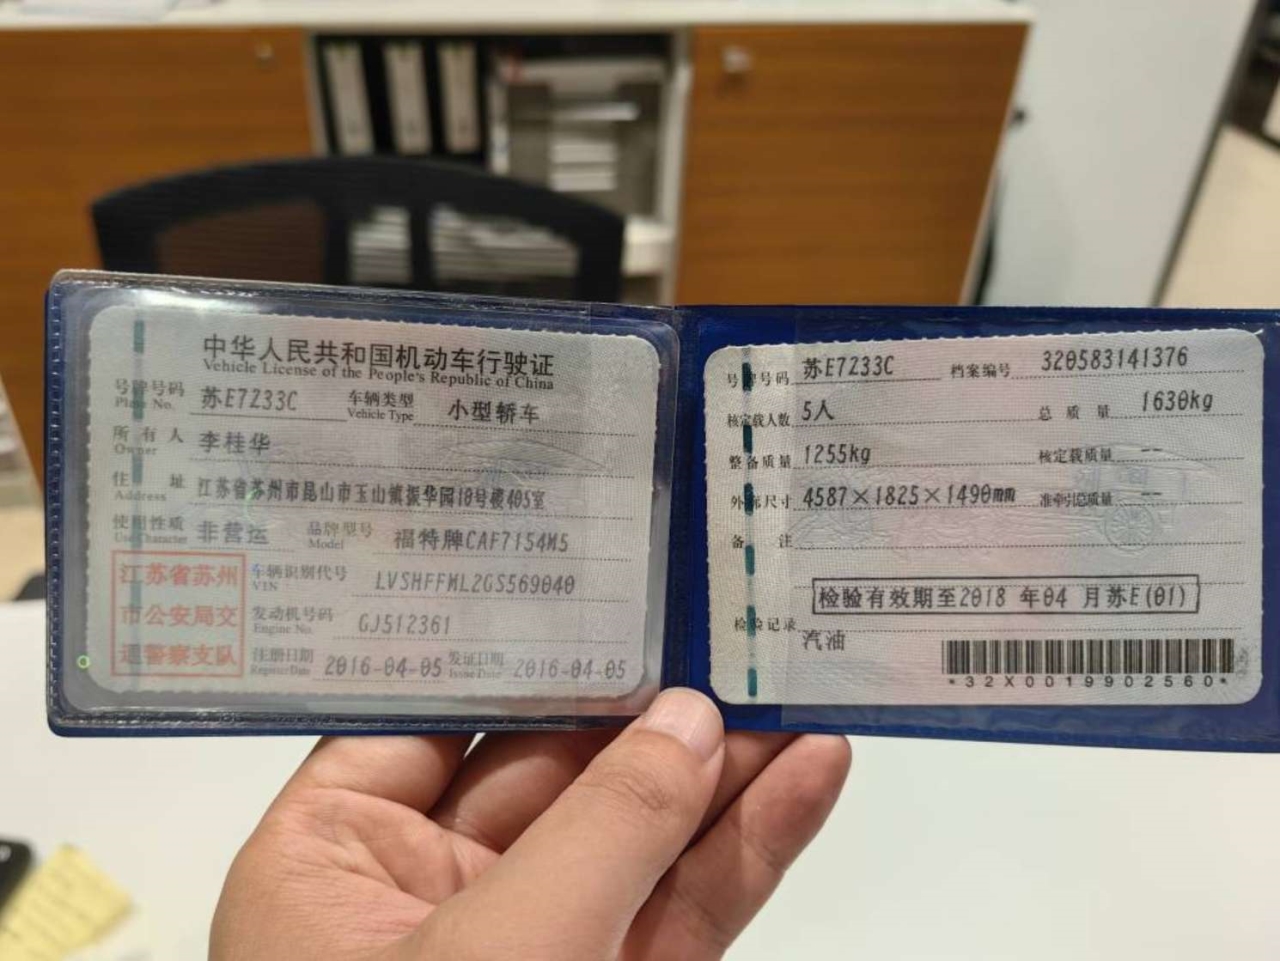 中华人民共和国机动车行驶证
Vehicle License of the People's Republic of China
号牌号码 苏E7Z33C 车辆类型 小型轿车
Plate No. Vehicle Type
所有人 李桂华
Owner
住址 江苏省苏州市昆山市玉山镇振华园10号楼405室
Address
使用性质 非营运 品牌型号 福特牌CAF7154M5
Use Character Model
江苏省苏州
市公安局交
通警察支队
车辆识别代号 LVSHFFML2GS569040
VIN
发动机号码 GJ512361
Engine No.
注册日期 2016-04-05 发证日期 2016-04-05
Register Date Issue Date
号牌号码 苏E7Z33C 档案编号 320583141376
核定载人数 5人 总质量 1630kg
整备质量 1255kg 核定载质量 --
外廓尺寸 4587×1825×1490mm 准牵引总质量 --
备注
检验有效期至2018 年04 月苏E(01)
检验记录
汽油
*32X0019902560*